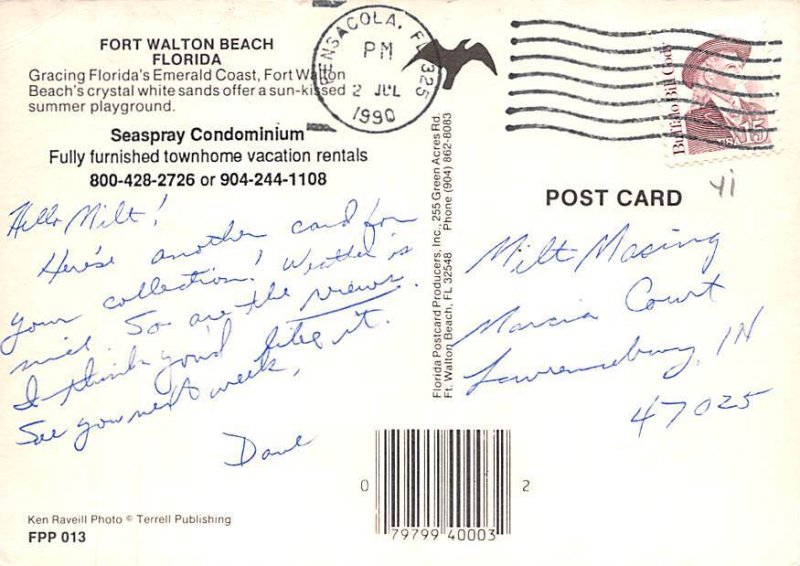 FORT WALTON BEACH
FLORIDA
Gracing Florida's Emerald Coast, Fort Walton
Beach's crystal white sands offer a sun-kissed
summer playground.
Seaspray Condominium
Fully furnished townhome vacation rentals
800-428-2726 or 904-244-1108
Hello Milt!
Here's another card for
your collection! Weather is
nice. So are the views.
I think you'd like it.
See you next week,
Dave
Ken Raveill Photo © Terrell Publishing
FPP 013
PENSACOLA, FL 325
PM
2 JUL
1990
Buffalo Bill Cody
USA
15
41
Florida Postcard Producers, Inc., 255 Green Acres Rd.
Ft. Walton Beach, FL 32548 Phone (904) 862-8083
POST CARD
Milt Masing
Marcia Court
Lawrenceburg, IN
47025
0 79799 40003 2